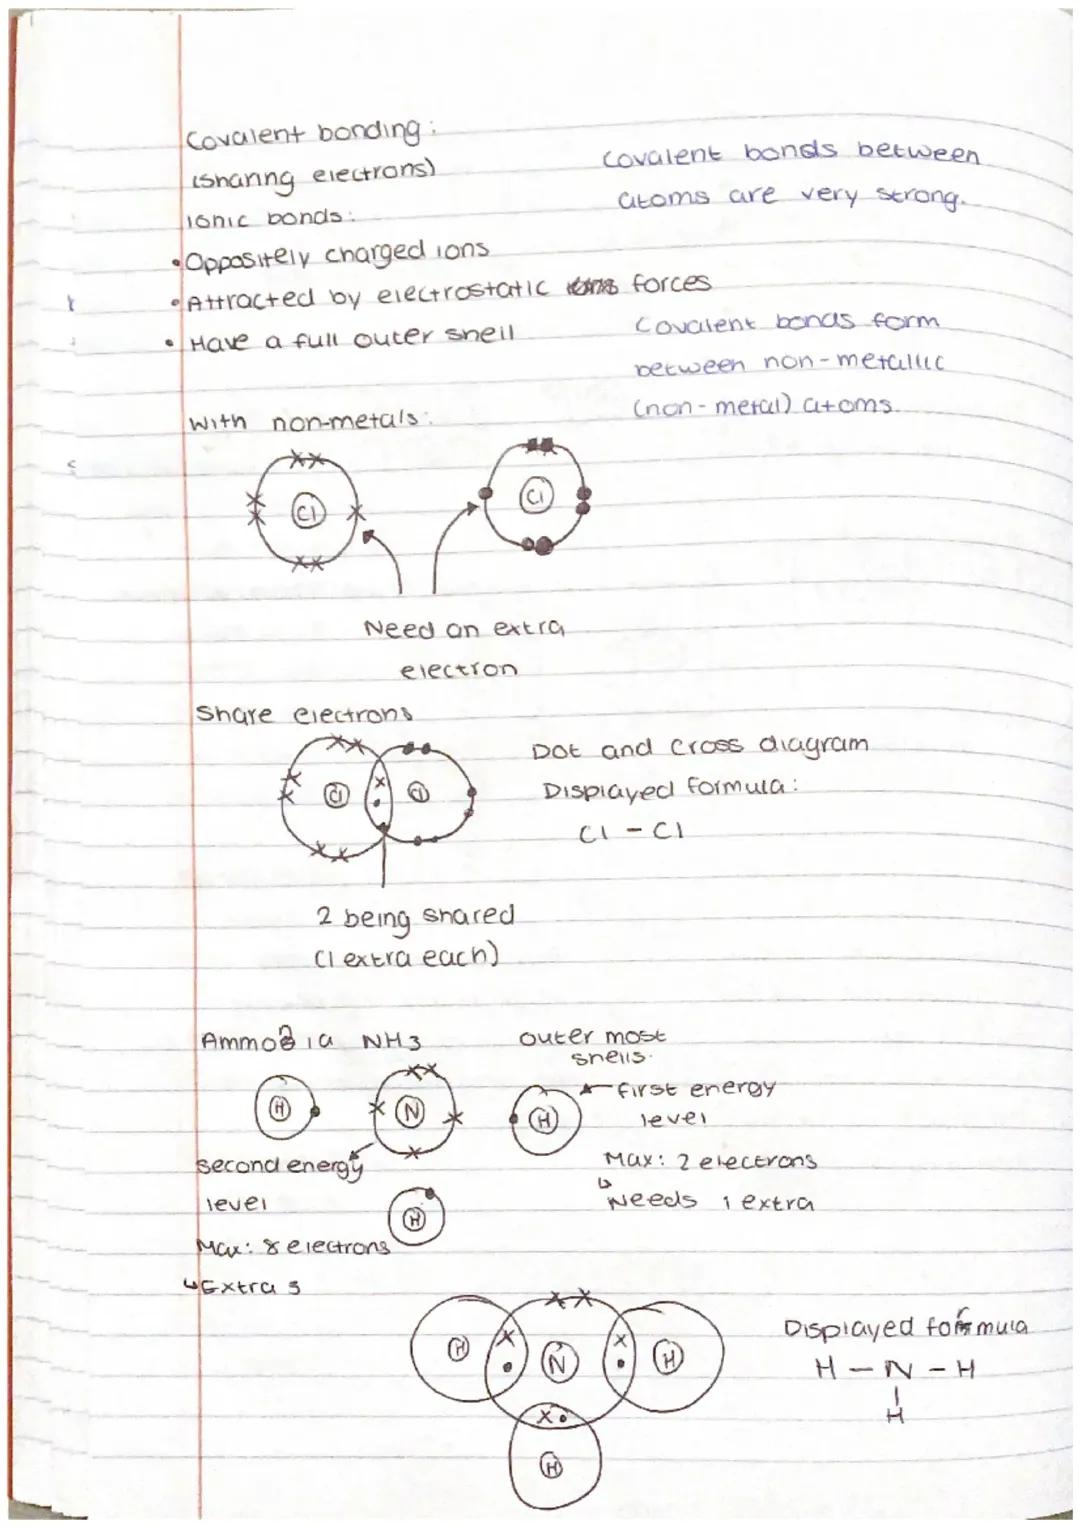 Covalent bonding:
(Sharing electrons)
Covalent bonds between
atoms are very strong.
Ionic bonds:
• Oppositely charged ions
• Attracted by electrostatic forces
• Have a full outer shell
Covalent bonds form
between non-metallic
(non-metal) atoms.
With non-metals:
Cl Cl
Need an extra
electron
Share electrons
Cl Cl
Dot and cross diagram
Displayed formula:
Cl - Cl
2 being shared
(1 extra each)
Ammonia NH3
outer most
shells.
H N H
first energy
level
Max: 2 electrons
↳ Needs 1 extra
second energy
level
H
Max: 8 electrons
↳ Extra 3
H N H
H
Displayed formula
H - N - H
|
H